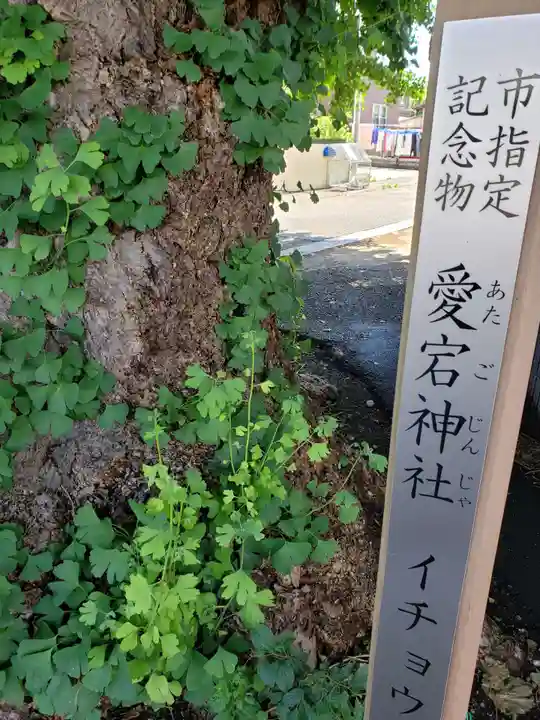 市指定
記念物
愛宕神社 イチョウ
あたごじんじゃ